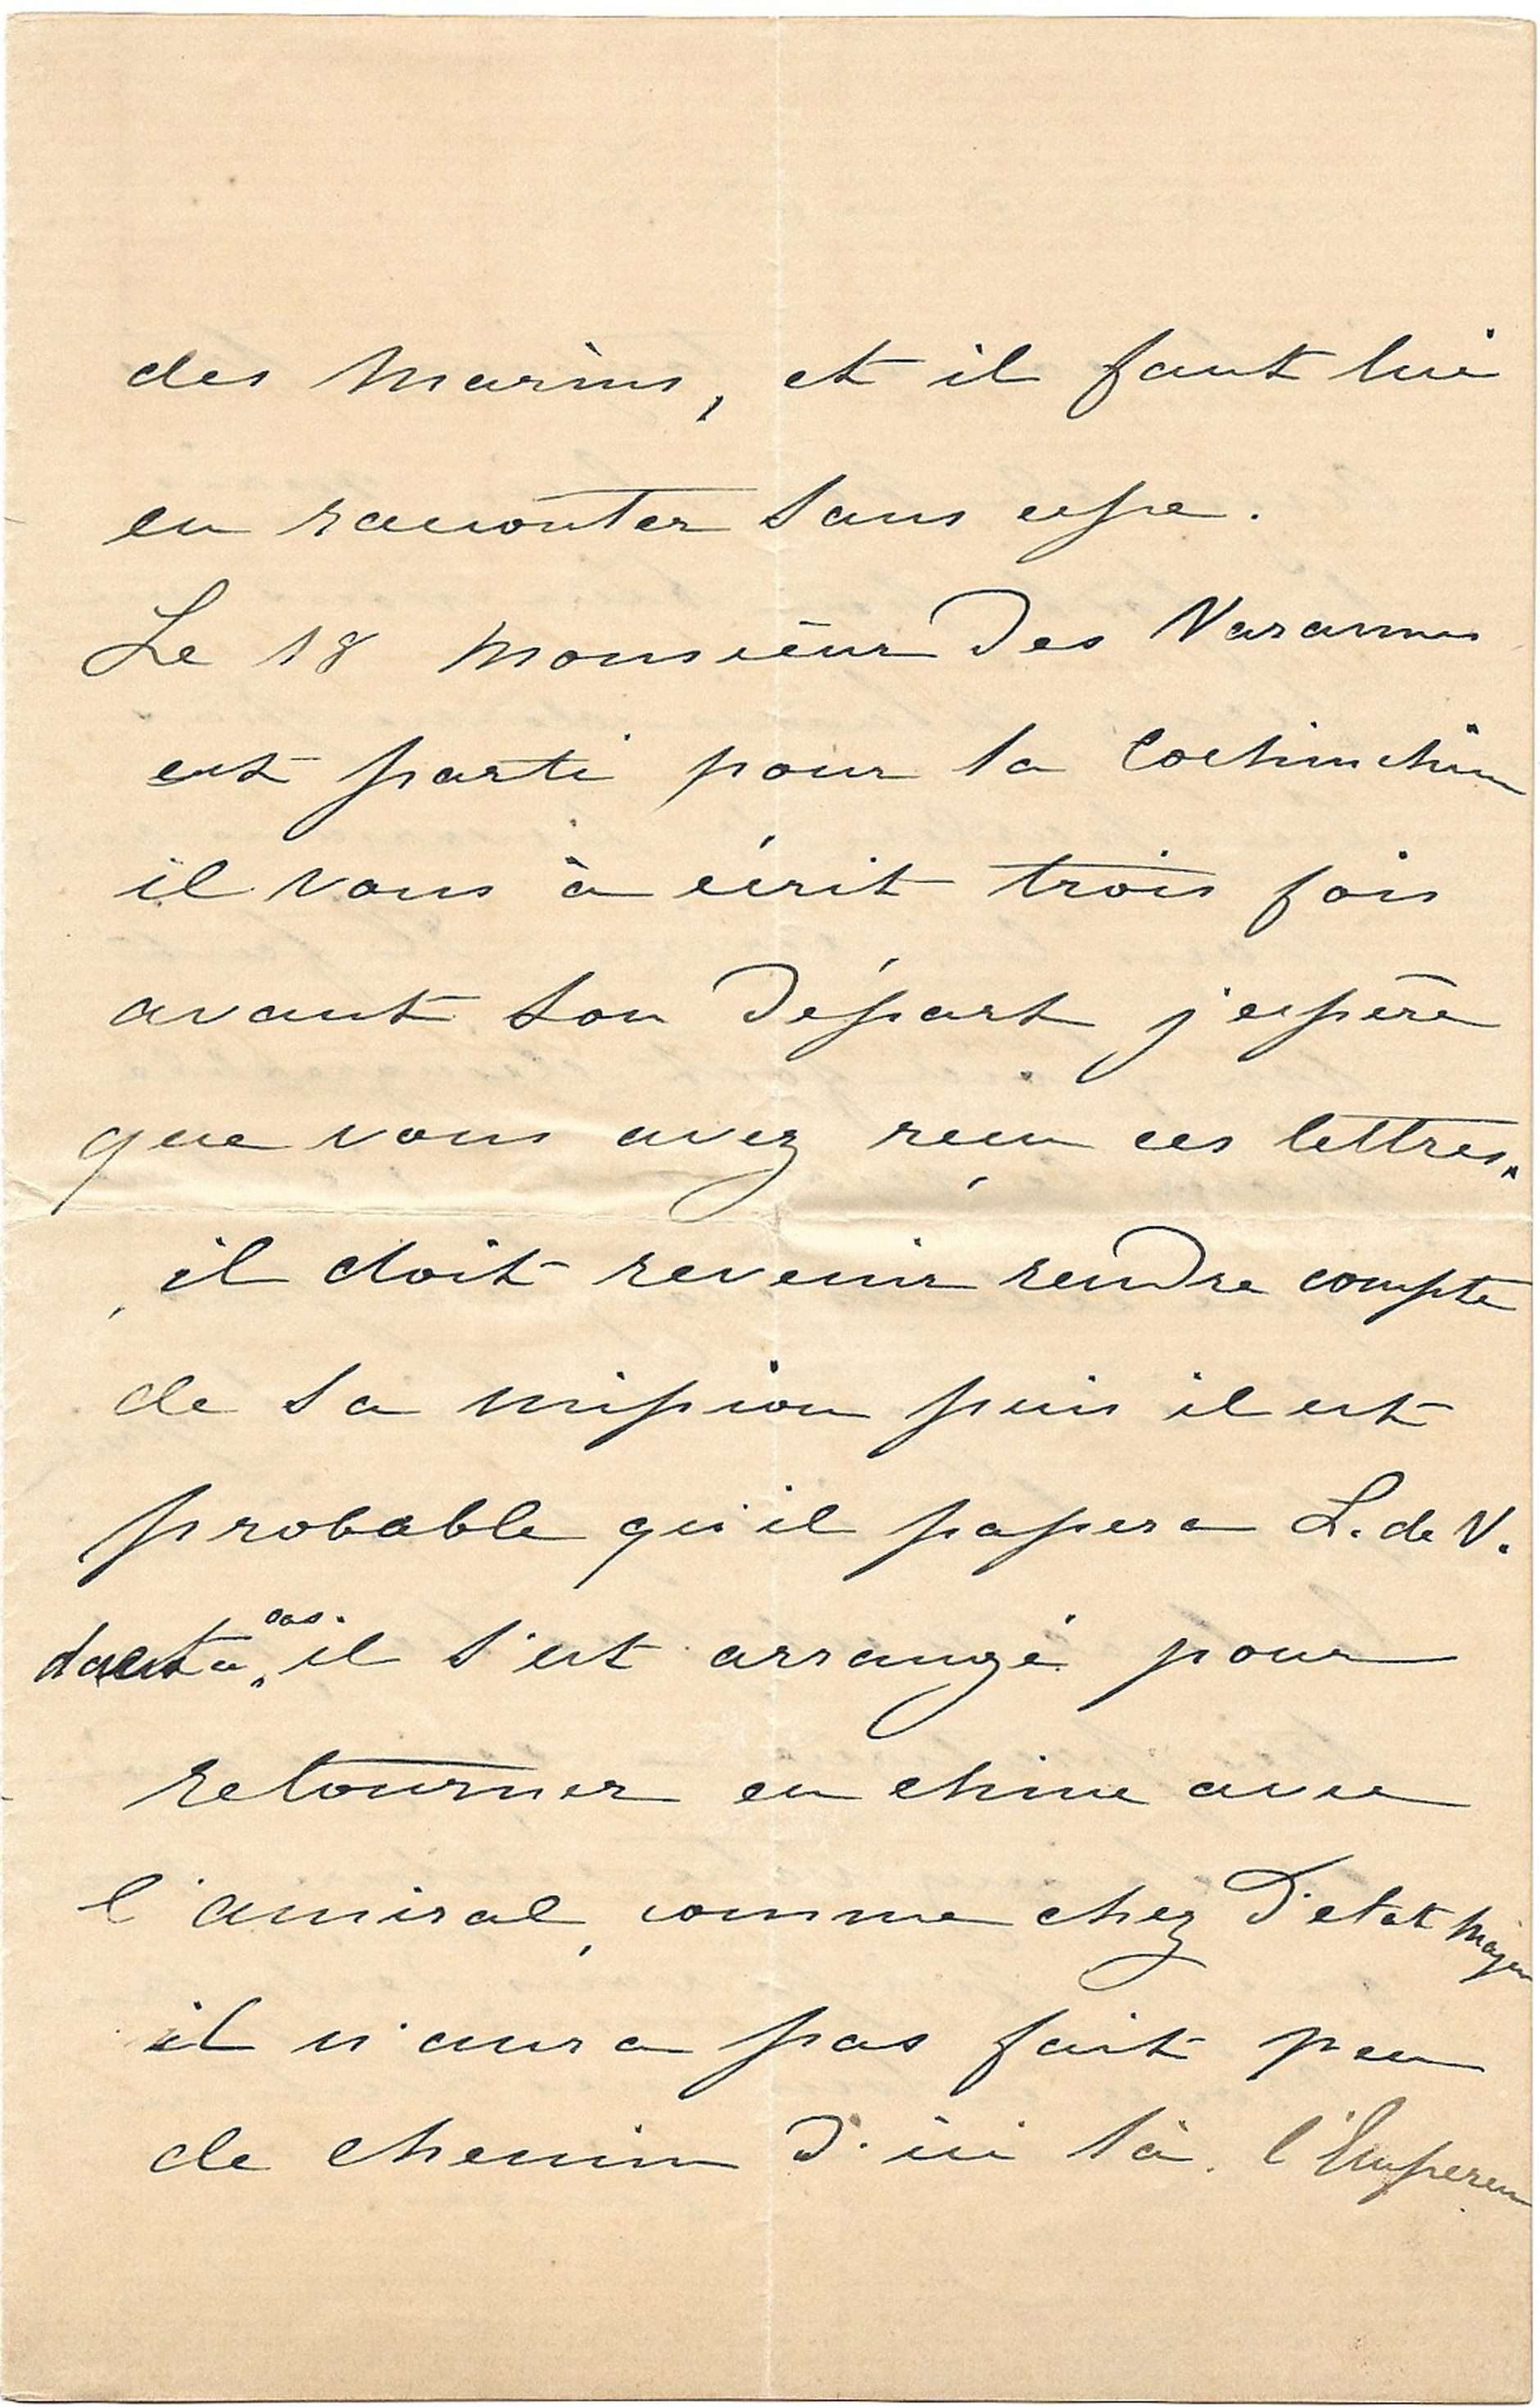 des marins, et il faut lui
en raconter sans cesse.
Le 18 Monsieur Des Varannes
est parti pour la Cochinchine
il vous à écrit trois fois
avant son Départ j'espère
que vous avez reçu ces lettres.
il doit revenir rendre compte
de sa mission puis il est
probable qu'il passera L. de V.
cas. il s'est arrangé pour
retourner en chine avec
l'amiral, comme chez D'etat Major
il n'aura pas fait peu
de chemin D'ici là. l'Empereur